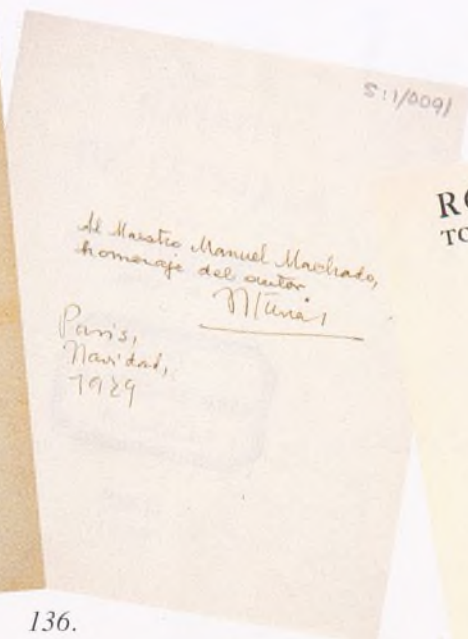 S:1/0091
Al Maestro Manuel Machado,
homenaje del autor
París,
Navidad,
1929
RO
TO
136.